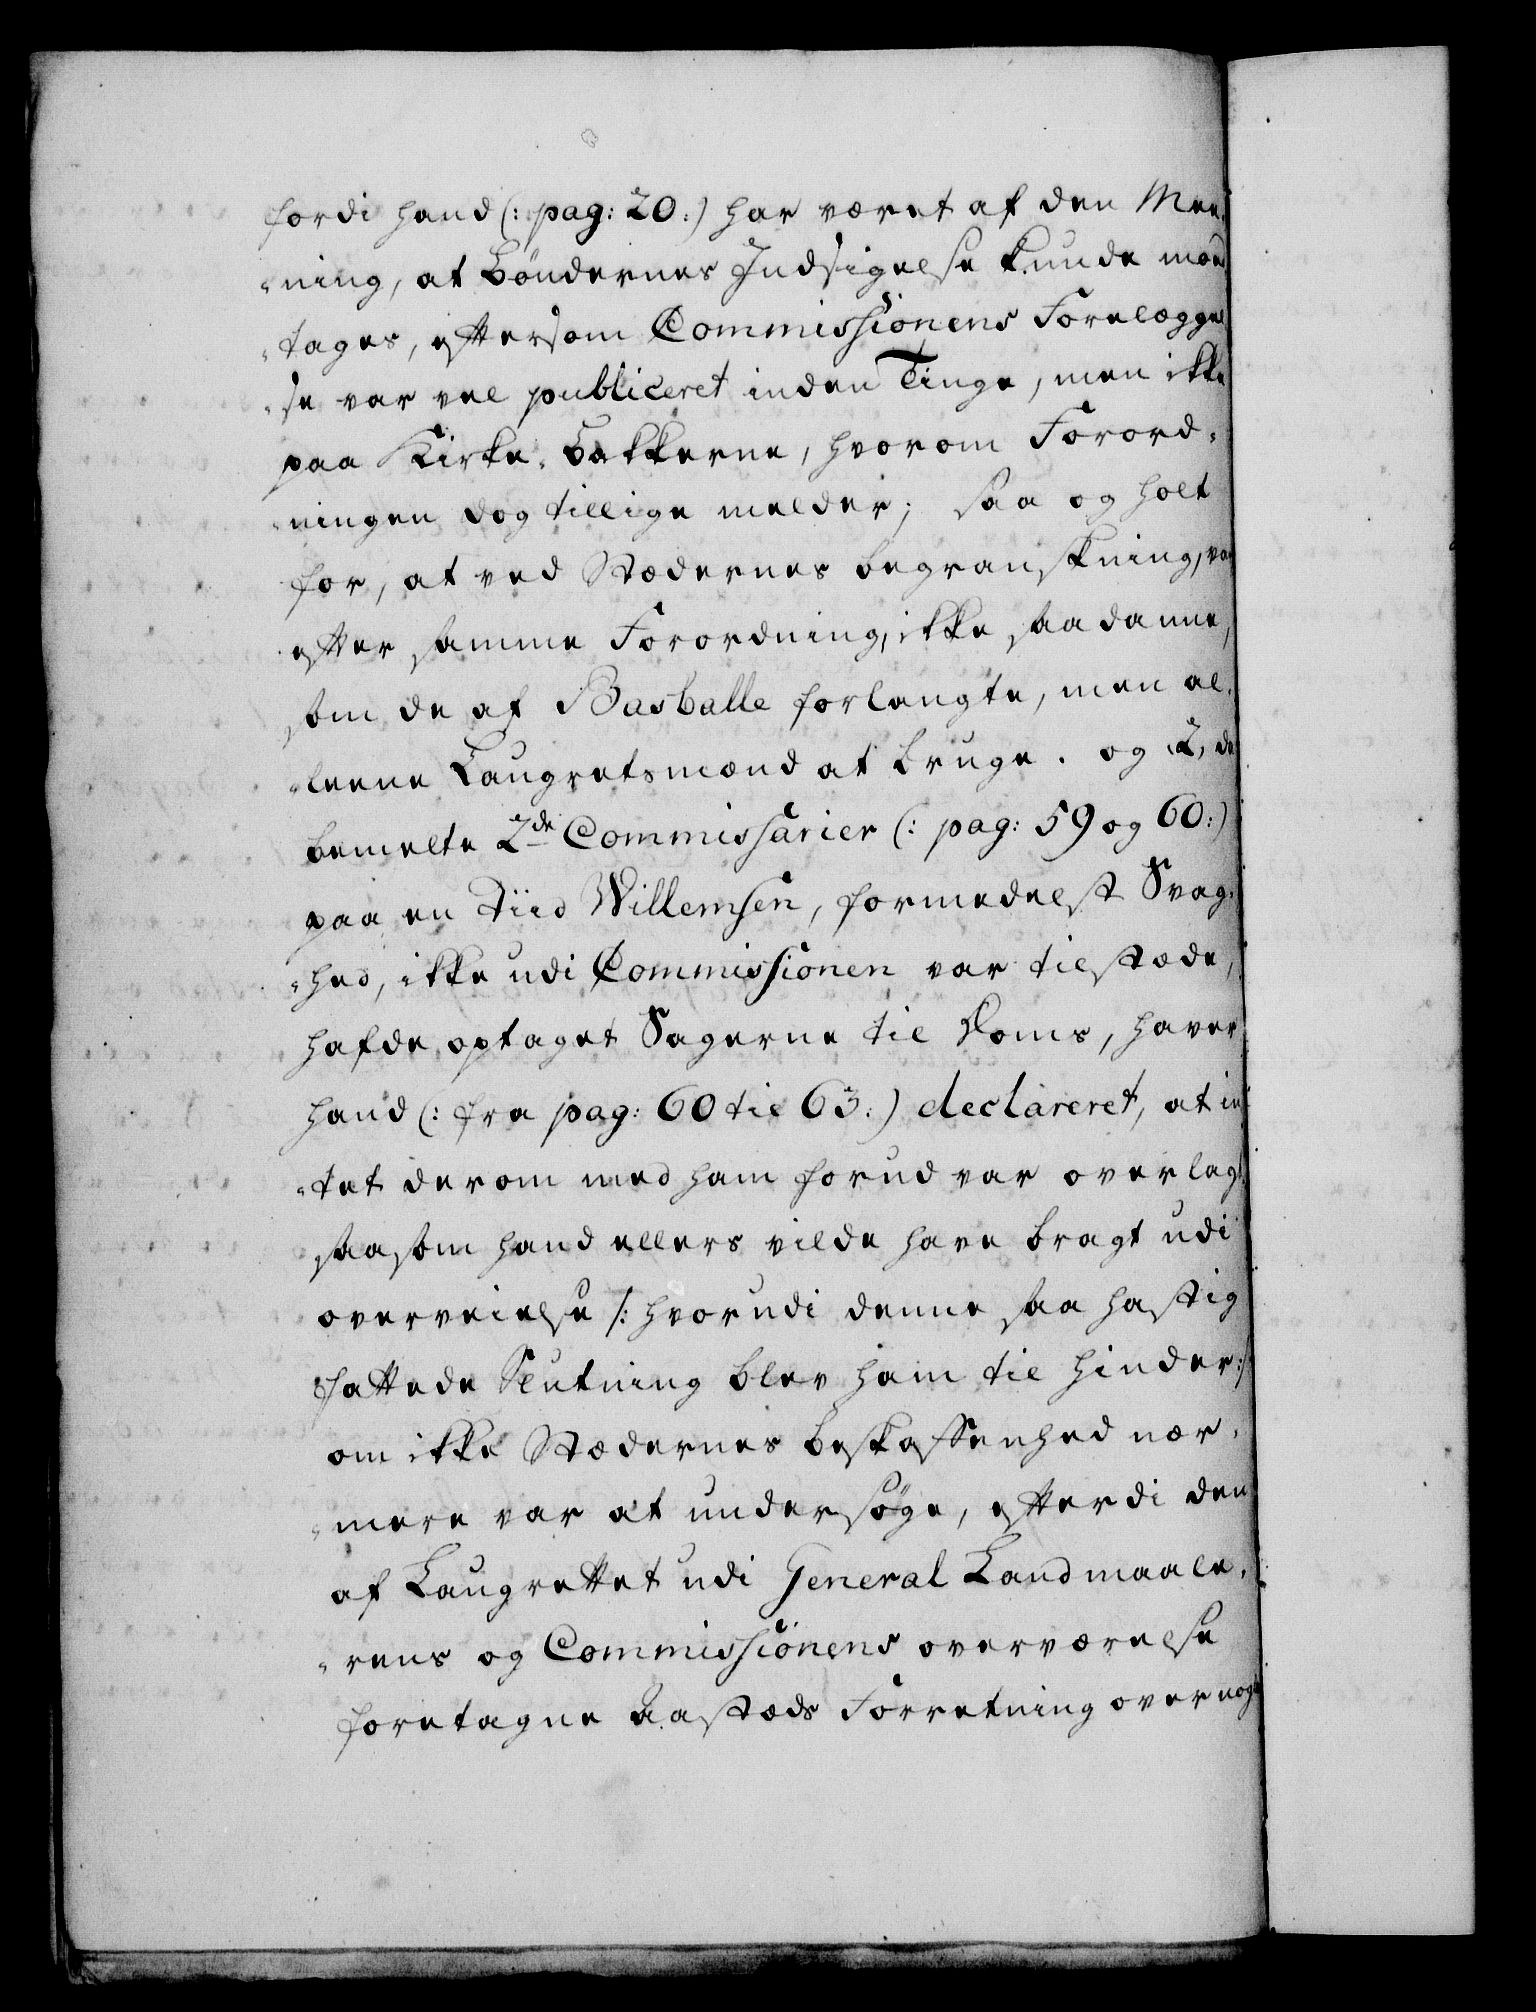 fordi hand (: pag: 20 :) har været af den Mee-
-ning, at Böndernes Indsigelse kunde mod
-tages, eftersom Commissionens Forelægge
-se var vel publiceret inden Tinge, men ikke
paa Kirke-Bakkerne, hvorom Forord-
-ningen dog tillige melder; saa og holt
for, at ved Stædernes begranskning, var
efter samme Forordning, ikke saadanne,
som de af Basballe forlangte, men al-
-leene Laugretsmænd at bruge. og 2, da
bemelte 2de Commissarier (: pag: 59 og 60 :)
paa en Tiid Willemsen, formedelst Svag-
-hed, ikke udi Commissionen var tilstæde,
hafde optaget Sagerne til Doms, haver
hand (: fra pag: 60 til 63 :) declareret, at in
-tet derom med ham forud var overlagt
saasom hand ellers vilde have bragt udi
overveielse /: hvorudi denne saa hastig
fattede Slutning blev ham til hinder :/
om ikke Stædernes beskaffenhed nær-
-mere var at undersøge, efterdi den
af Laugrettet udi General Landmaale-
-rens og Commissionens overværelse
foretagne Aastæds Forretning over nogle